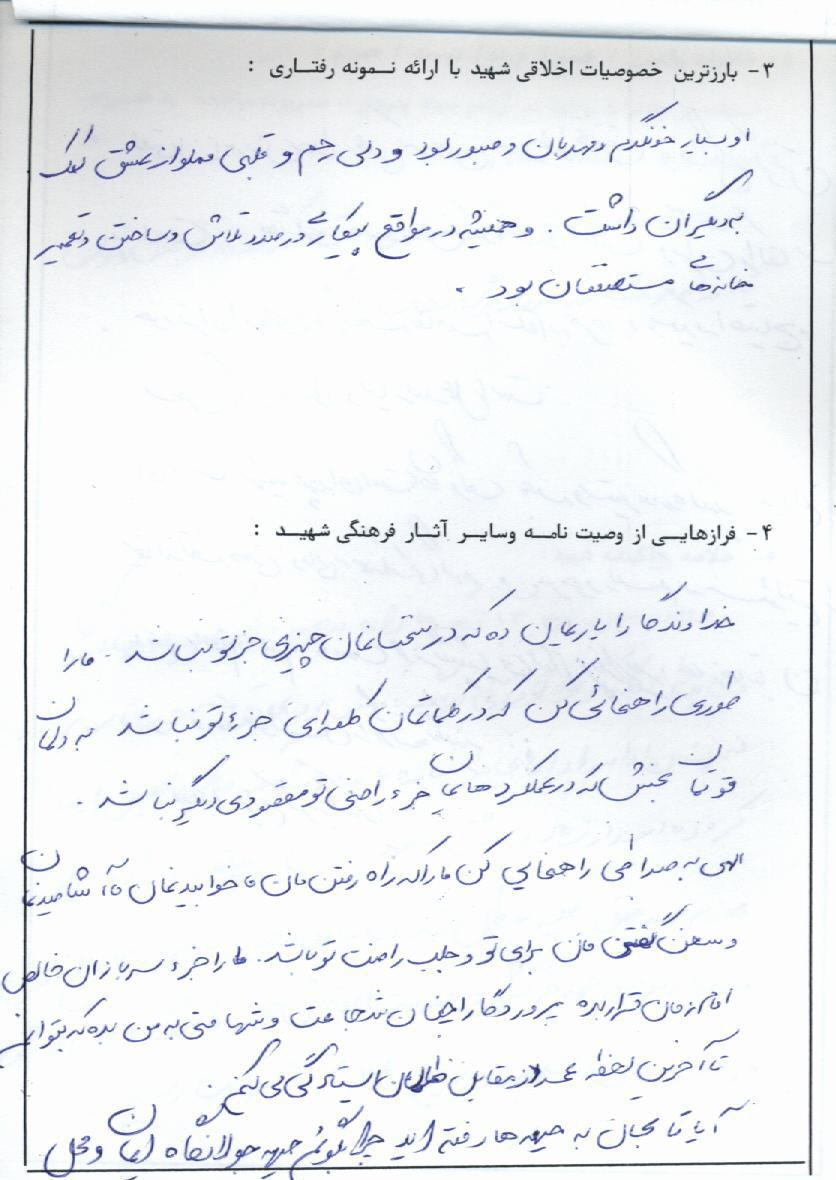 ۳- بارزترین خصوصیات اخلاقی شهید با ارائه نمونه رفتاری :
او بسیار خونگرم و مهربان و صبور بود و دلی رحیم و قلبی مملو از عشق کمک
به دیگران داشت . و همیشه در مواقع بیکاری در صدد تلاش و ساختن و تعمیر
خانه‌های مستضعفان بود .
۴- فرازهایی از وصیت نامه وسایر آثار فرهنگی شهید :
خداوندگارا یاریمان ده که در سخنانمان چیزی جز تو نباشد . ما را
طوری راهنمائی کن که در کلماتمان کلمه‌ای جزء تو نباشد به دلمان
قوتمان بخش که در عملکردهایمان جزء راضی تو مقصودی دیگر نباشد .
الهی به صراطی راهنمایی کن ما را که راه رفتن مان خوابیدنمان آشامیدنمان
و سخن گفتن مان برای تو و جلب رضایت تو باشد . ما را جزء سربازان خالص
امام زمان قرار بده پروردگارا چنان شجاعت و شهامتی به من بده که بتوانم
تا آخرین لحظه عمر در مقابل ظالمان ایستادگی می کنم .
آیا تا بحال به جبهه ها رفته اید چرا بگویم جبهه جولانگاه ایمان و محل